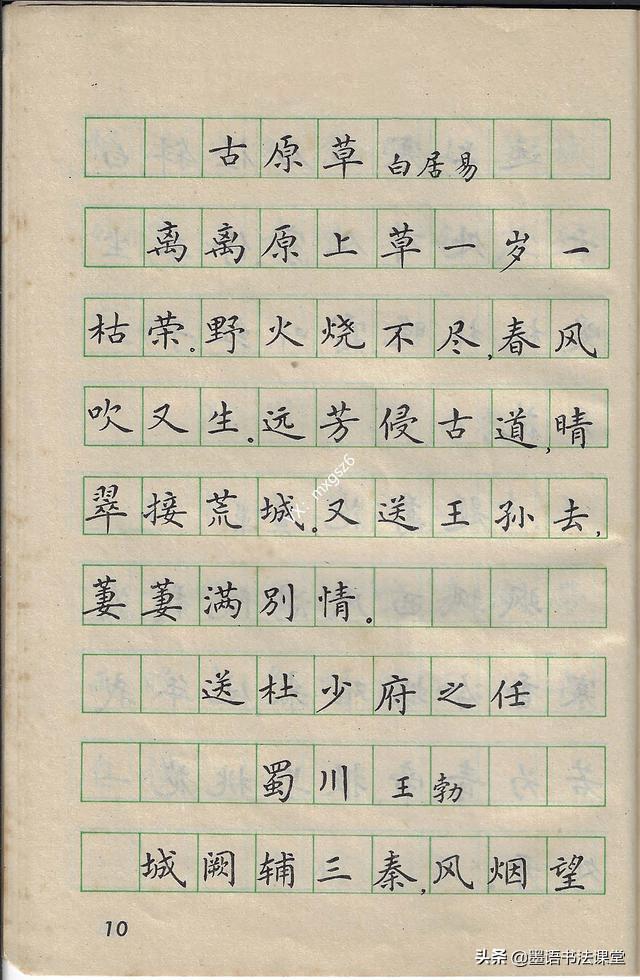 古原草 白居易
离离原上草一岁一
枯荣。野火烧不尽,春风
吹又生。远芳侵古道,晴
翠接荒城。又送王孙去,
萋萋满别情。
送杜少府之任
蜀川 王勃
城阙辅三秦,风烟望
10
VX: mxgsz6
头条@墨语书法课堂